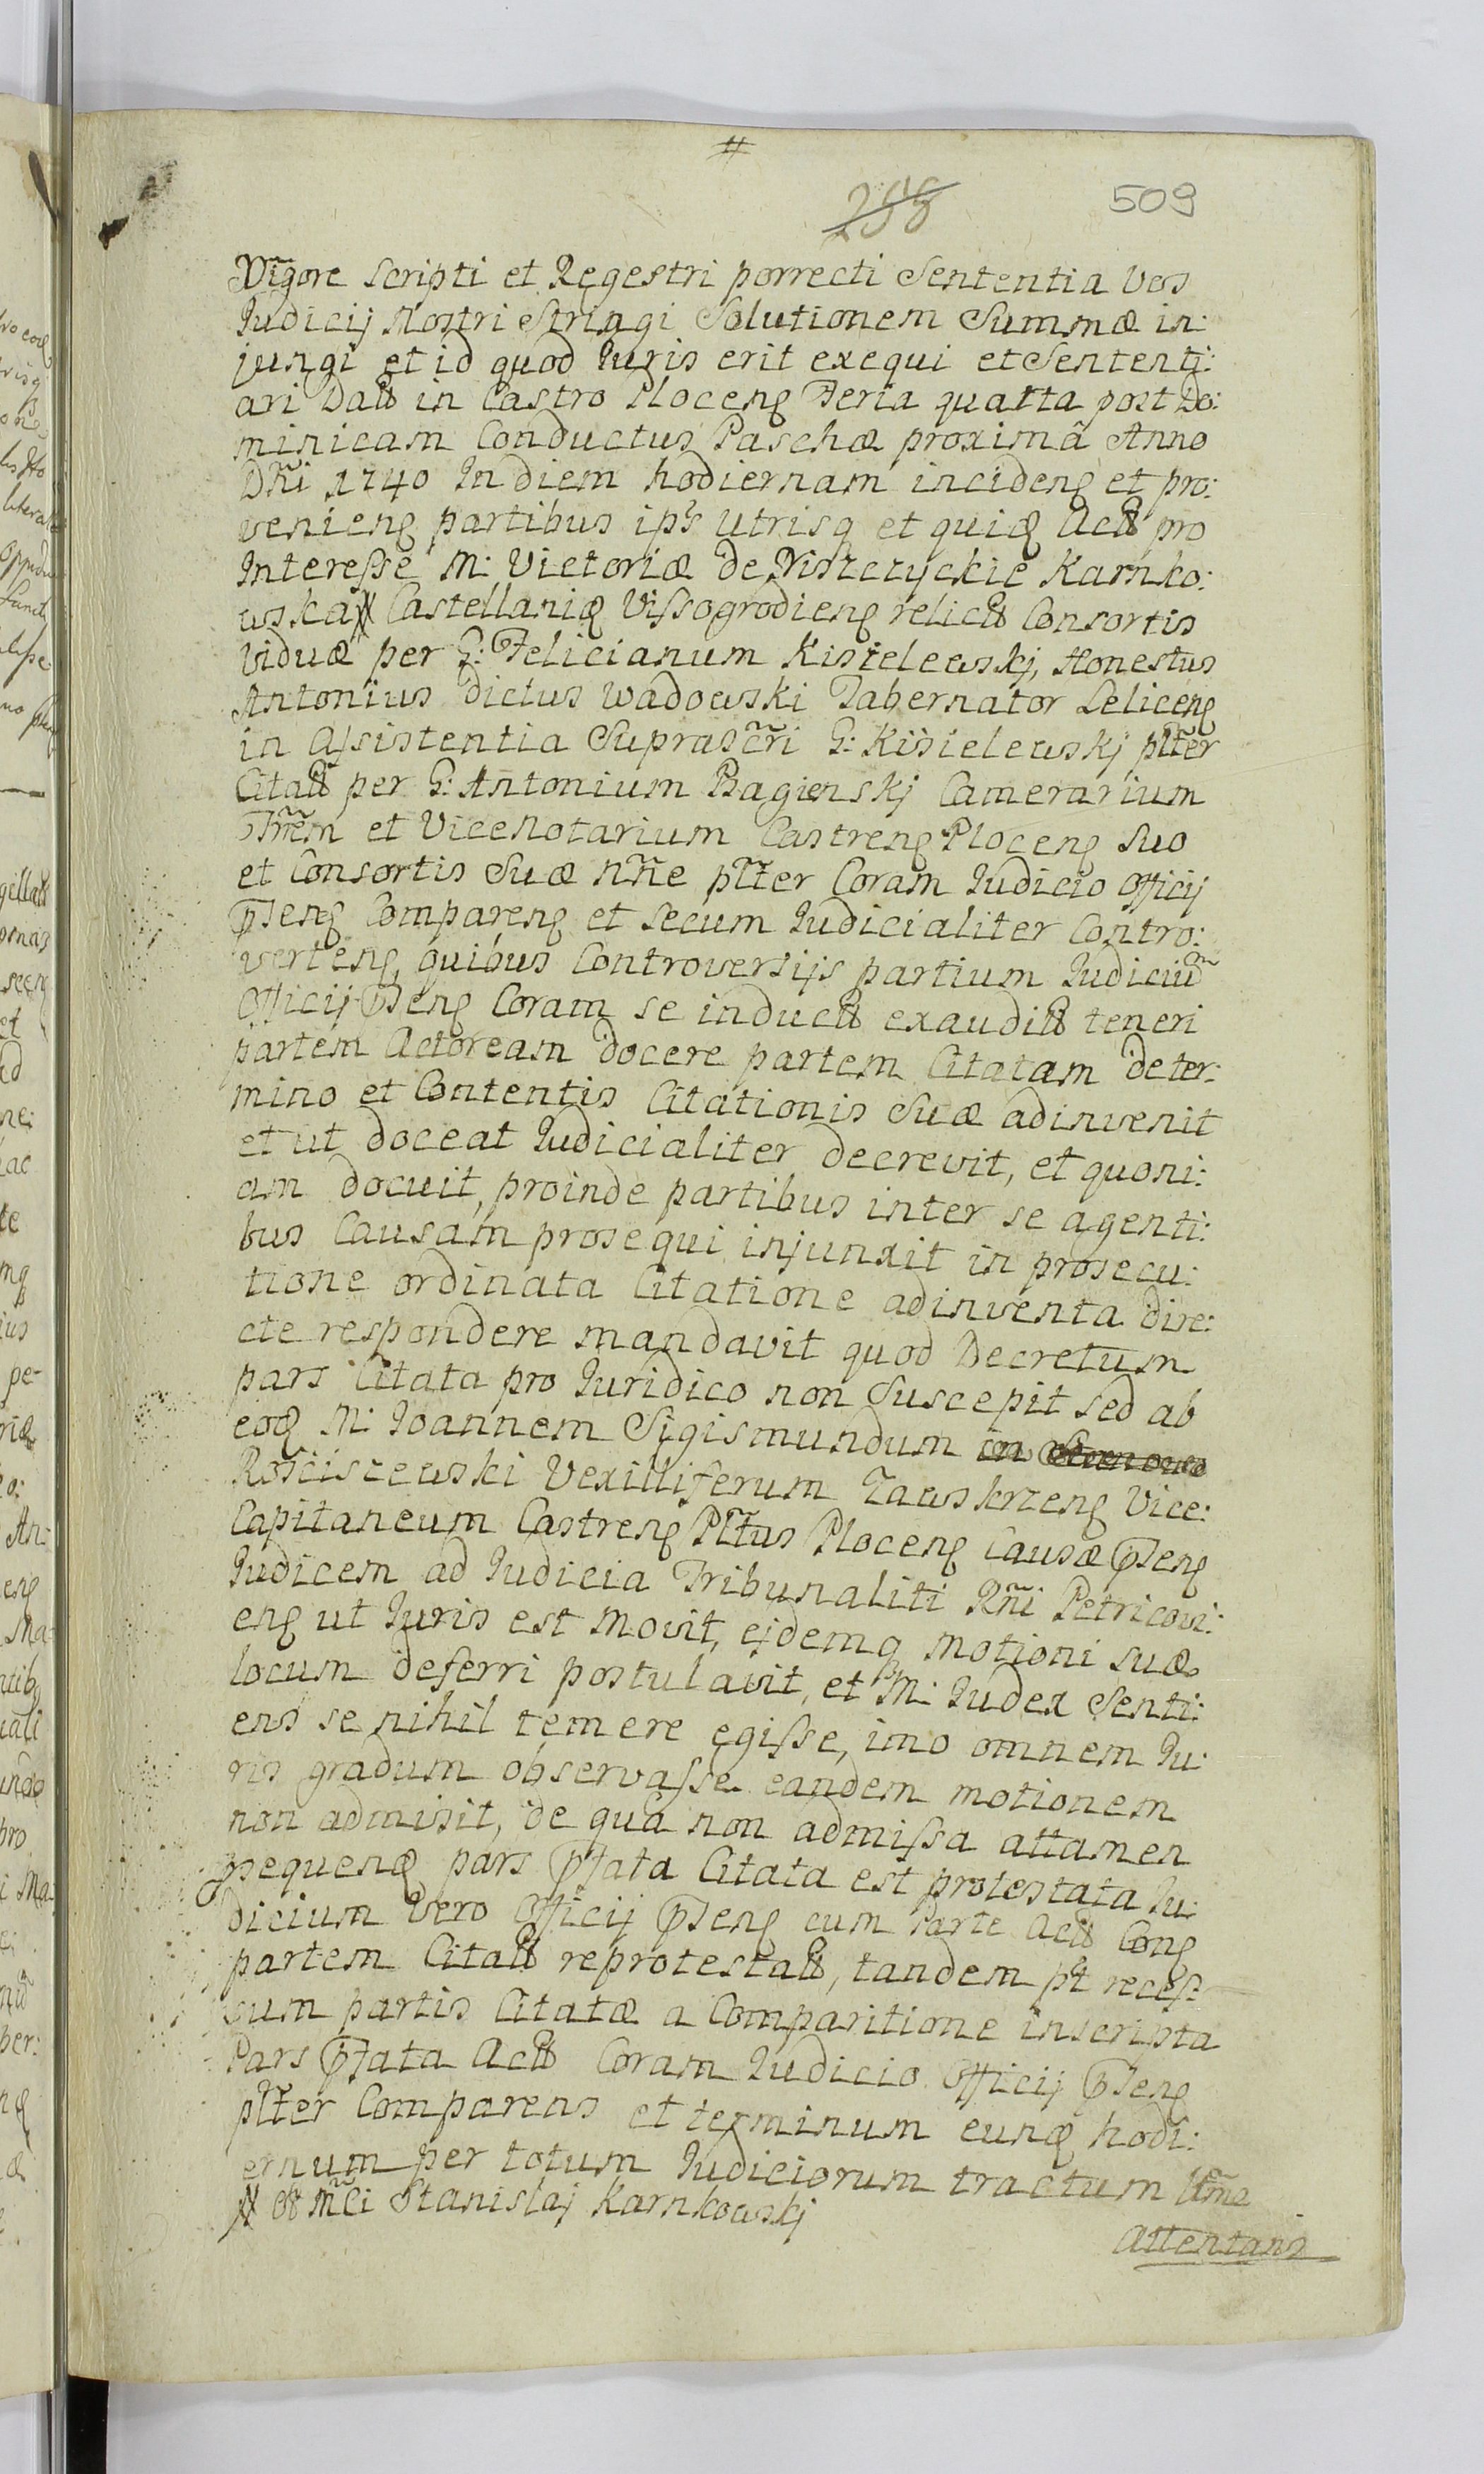 #
509
Vigore scripti et Regestri porrecti Sententia Vos
Judicij Nostri Stringi Solutionem Summæ in:
jungi et id quod Juris erit exequi et Sententi:
ari Datt in Castro Ploceng Feria quarta post Do:
minicam Conductus Paschæ proximâ Anno
Dñi 1740 In diem hodiernam incideng et pro:
venieng partibus ips's utrisq et quidē Actt pro
Interesse M: Victoriæ de Niszczyckie Karnko:
wska # Castellanię Vissogrodieng relictt Consortis
Viduæ per G: Felicianum Kisielewskj, Honestus
Antonius dictus Wadowski Tabernator Leliceng
in Assistentia Suprascr̃i G: Kisielewskj pl̃ter
Citatt per G: Antonium Bagienskj Camerarium
Tr̃rem et Vicenotarium Castreng Ploceng Suo
et Consortis Suæ nñe pl̃ter Coram Judicio Officij
p̃seng Compareng et secum Judicialiter Contro:
verteng, quibus Controversijs partium Judiciũ
Officij p̃seng Coram se inductt exauditt teneri
partem Actoream docere partem Citatam de ter:
mino et Contentis Citationis Suæ adinvenit
et ut doceat Judicialiter decrevit, et quoni:
am docuit, proinde partibus inter se agenti:
bus Causam prosequi injunxit in prosecu:
tione ordinata Citatione adinventa dire:
cte respondere mandavit quod Decretum
pars Citata pro Juridico non Suscepit sed ab
eoq̃ M: Joannem Sigismundum in
Rosciszewski Vexilliferum Zawskrzeng Vice:
Capitaneum Castreng Pltus Ploceng causæ p̃seng
Judicem ad Judicia Tribunaliti Rñi Petricovi:
eng ut Juris est Movit, ejdemq motioni suæ
locum deferri postulavit, et M: Judex Senti:
ens se nihil temere egisse, imo omnem Ju:
ris gradum observasse eandem motionem
non admisit, de quâ non admissa attamen
pars p̃fata Citata est protestata Ju:
dicium Vero Officij p̃seng cum Parte Actt Cong
partem Citatt reprotestatt, tandem pt reces:
sum partis Citatæ a Comparitione inscripta
Pars p̃fata Actt Coram Judicio Officij p̃seng
pl̃ter Comparens et terminum eunq̃ hodi:
ernum per totum Judiciorum tractum Ultima
# Ol Mci Stanislaj Karnkowskj
Attentans